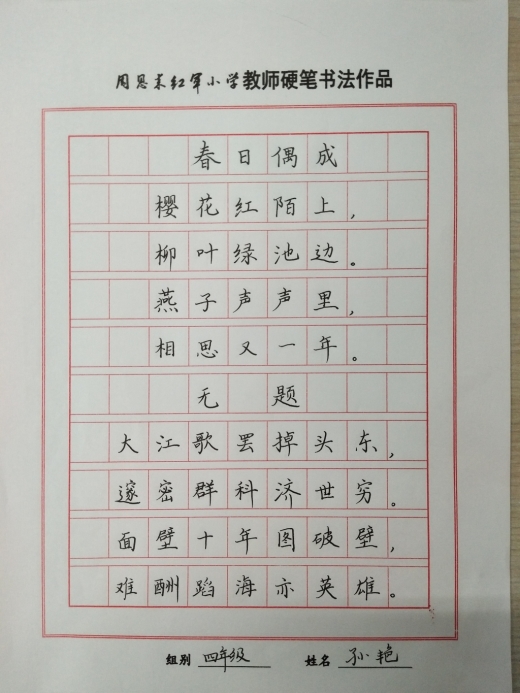 周恩来红军小学教师硬笔书法作品
春日偶成
樱花红陌上，
柳叶绿池边。
燕子声声里，
相思又一年。
无题
大江歌罢掉头东，
邃密群科济世穷。
面壁十年图破壁，
难酬蹈海亦英雄。
组别 四年级 姓名 孙艳